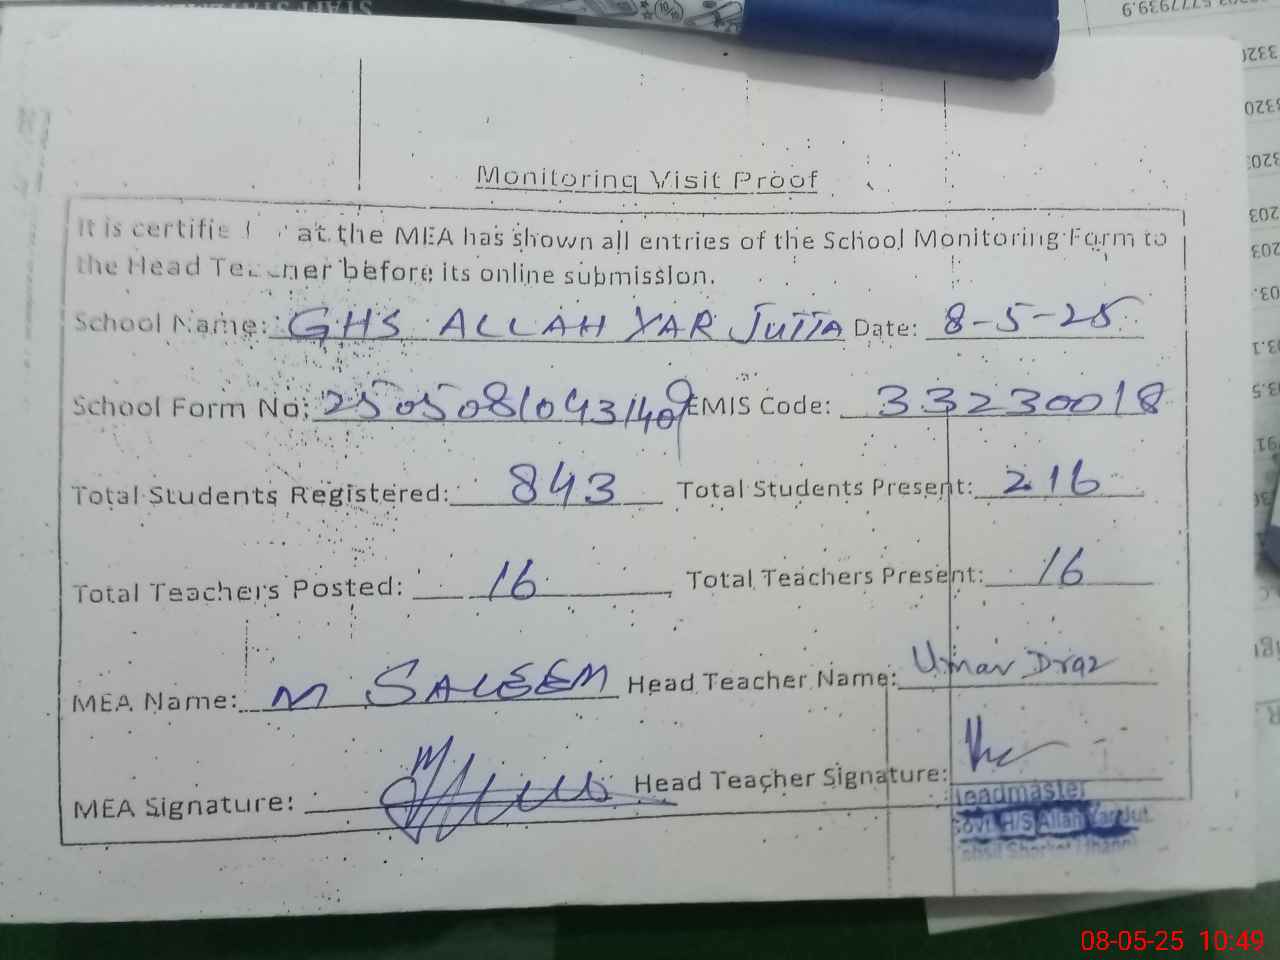 Monitoring Visit Proof
It is certifie at the MEA has shown all entries of the School Monitoring Form to
the Head Teacher before its online submission.
School Name: GHS ALLAH YAR JUTTA Date: 8-5-25
School Form No: 25050810431409 EMIS Code: 33230018
Total Students Registered: 843 Total Students Present: 216
Total Teachers Posted: 16 Total Teachers Present: 16
MEA Name: M SALEEM Head Teacher Name: Umar Draz
MEA Signature: Head Teacher Signature:
Headmaster
Govt. H/S Allah Yar Jut
08-05-25 10:49